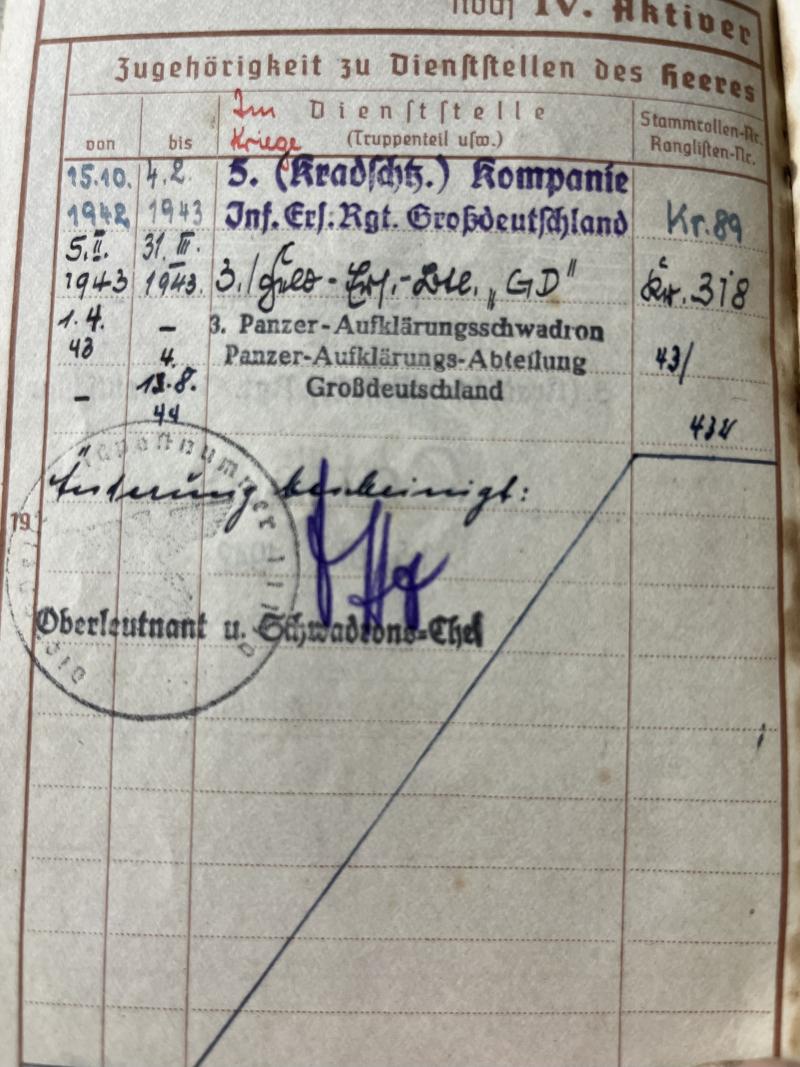 noch IV. Aktiver
Zugehörigkeit zu Dienststellen des Heeres
von
bis
Im Kriege
Dienststelle
(Truppenteil usw.)
Stammrollen-Nr.
Ranglisten-Nr.
15.10. 4.2. 5. (Kradschtz.) Kompanie
1942 1943 Inf. Ers. Rgt. Großdeutschland Kr. 89
5. II. 31. III.
1943 1943. 3./ Ers.- „GD" Kr. 318
1.4. – 3. Panzer-Aufklärungsschwadron
43 4. Panzer-Aufklärungs-Abteilung 43/
– 13.8. Großdeutschland
44 432
Änderung bescheinigt:
19
Oberleutnant u. Schwadrons=Chef